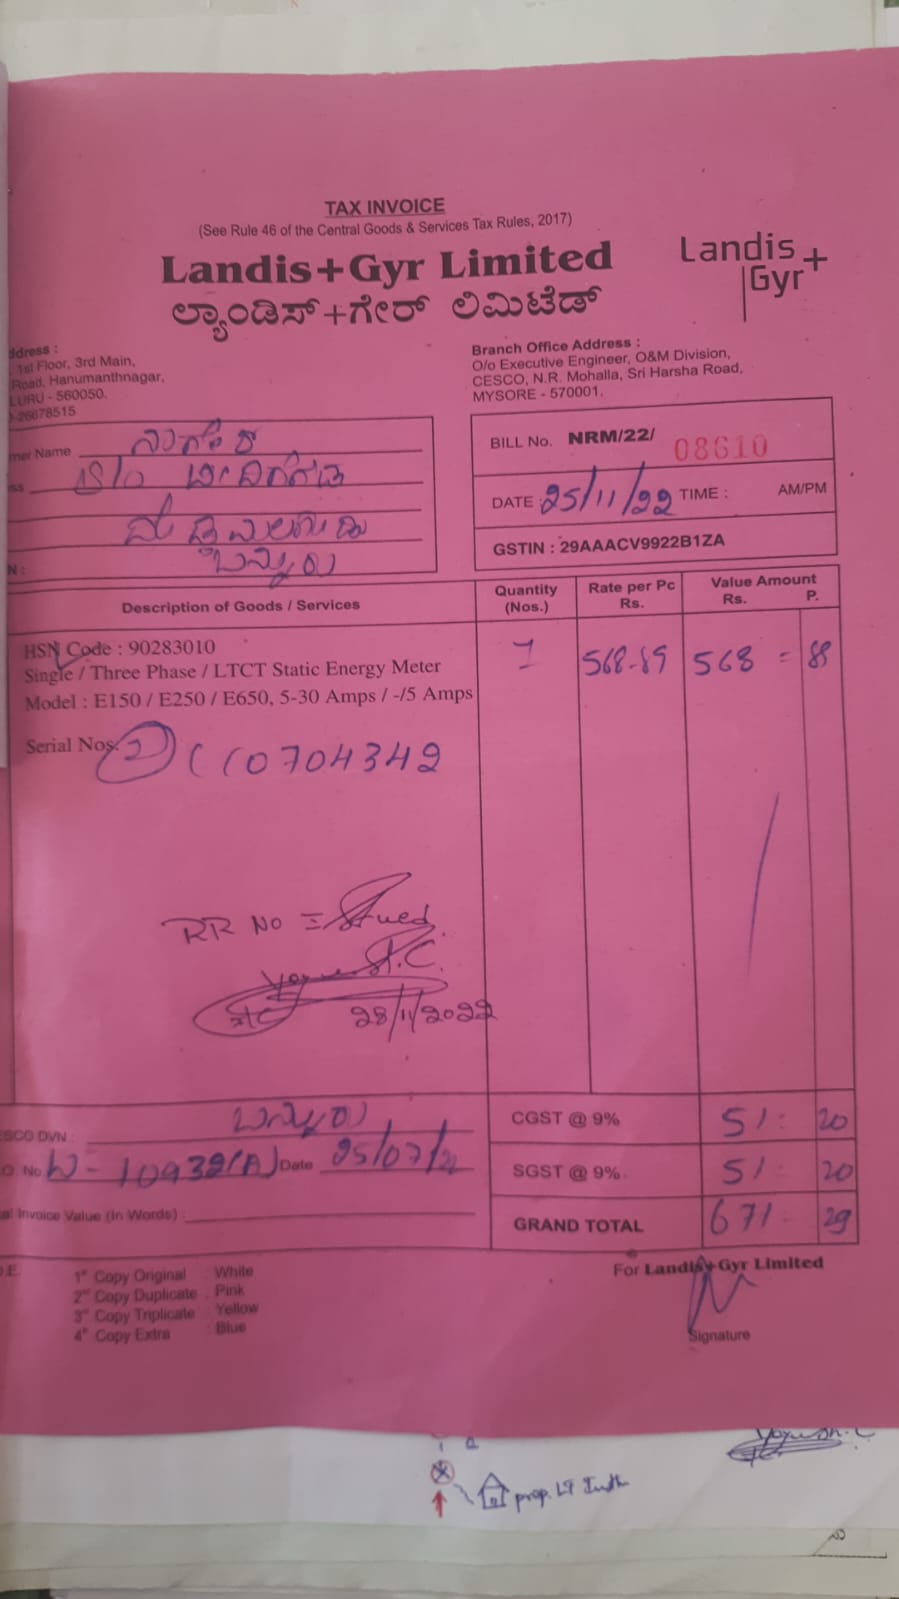 TAX INVOICE
(See Rule 46 of the Central Goods & Services Tax Rules, 2017)
Landis+Gyr Limited
ಲ್ಯಾಂಡಿಸ್+ಗೇರ್ ಲಿಮಿಟೆಡ್
Landis+
Gyr
ddress :
1st Floor, 3rd Main,
Road, Hanumanthnagar,
LURU - 560050.
-26678515
Branch Office Address :
O/o Executive Engineer, O&M Division,
CESCO, N.R. Mohalla, Sri Harsha Road,
MYSORE - 570001.
mer Name
ss S/o
ಬನ್ನೂರು
N :
BILL No. NRM/22/ 08610
DATE : 25/11/22 TIME : AM/PM
GSTIN : 29AAACV9922B1ZA
Description of Goods / Services
Quantity
(Nos.)
Rate per Pc
Rs.
Value Amount
Rs. P.
HSN Code : 90283010
Single / Three Phase / LTCT Static Energy Meter
Model : E150 / E250 / E650, 5-30 Amps / -/5 Amps
1 568-89 568 = 89
Serial Nos.
0704342
RR No = Issued
28/11/2022
SCO DVN : ಬನ್ನೂರು
O. No W-10932(A) Date 25/07/22
al Invoice Value (In Words) :
CGST @ 9% 51 : 20
SGST @ 9% 51 : 20
GRAND TOTAL 671 - 29
O.E.
1st Copy Original : White
2nd Copy Duplicate : Pink
3rd Copy Triplicate : Yellow
4th Copy Extra : Blue
For Landis+Gyr Limited
Signature
prop. LT